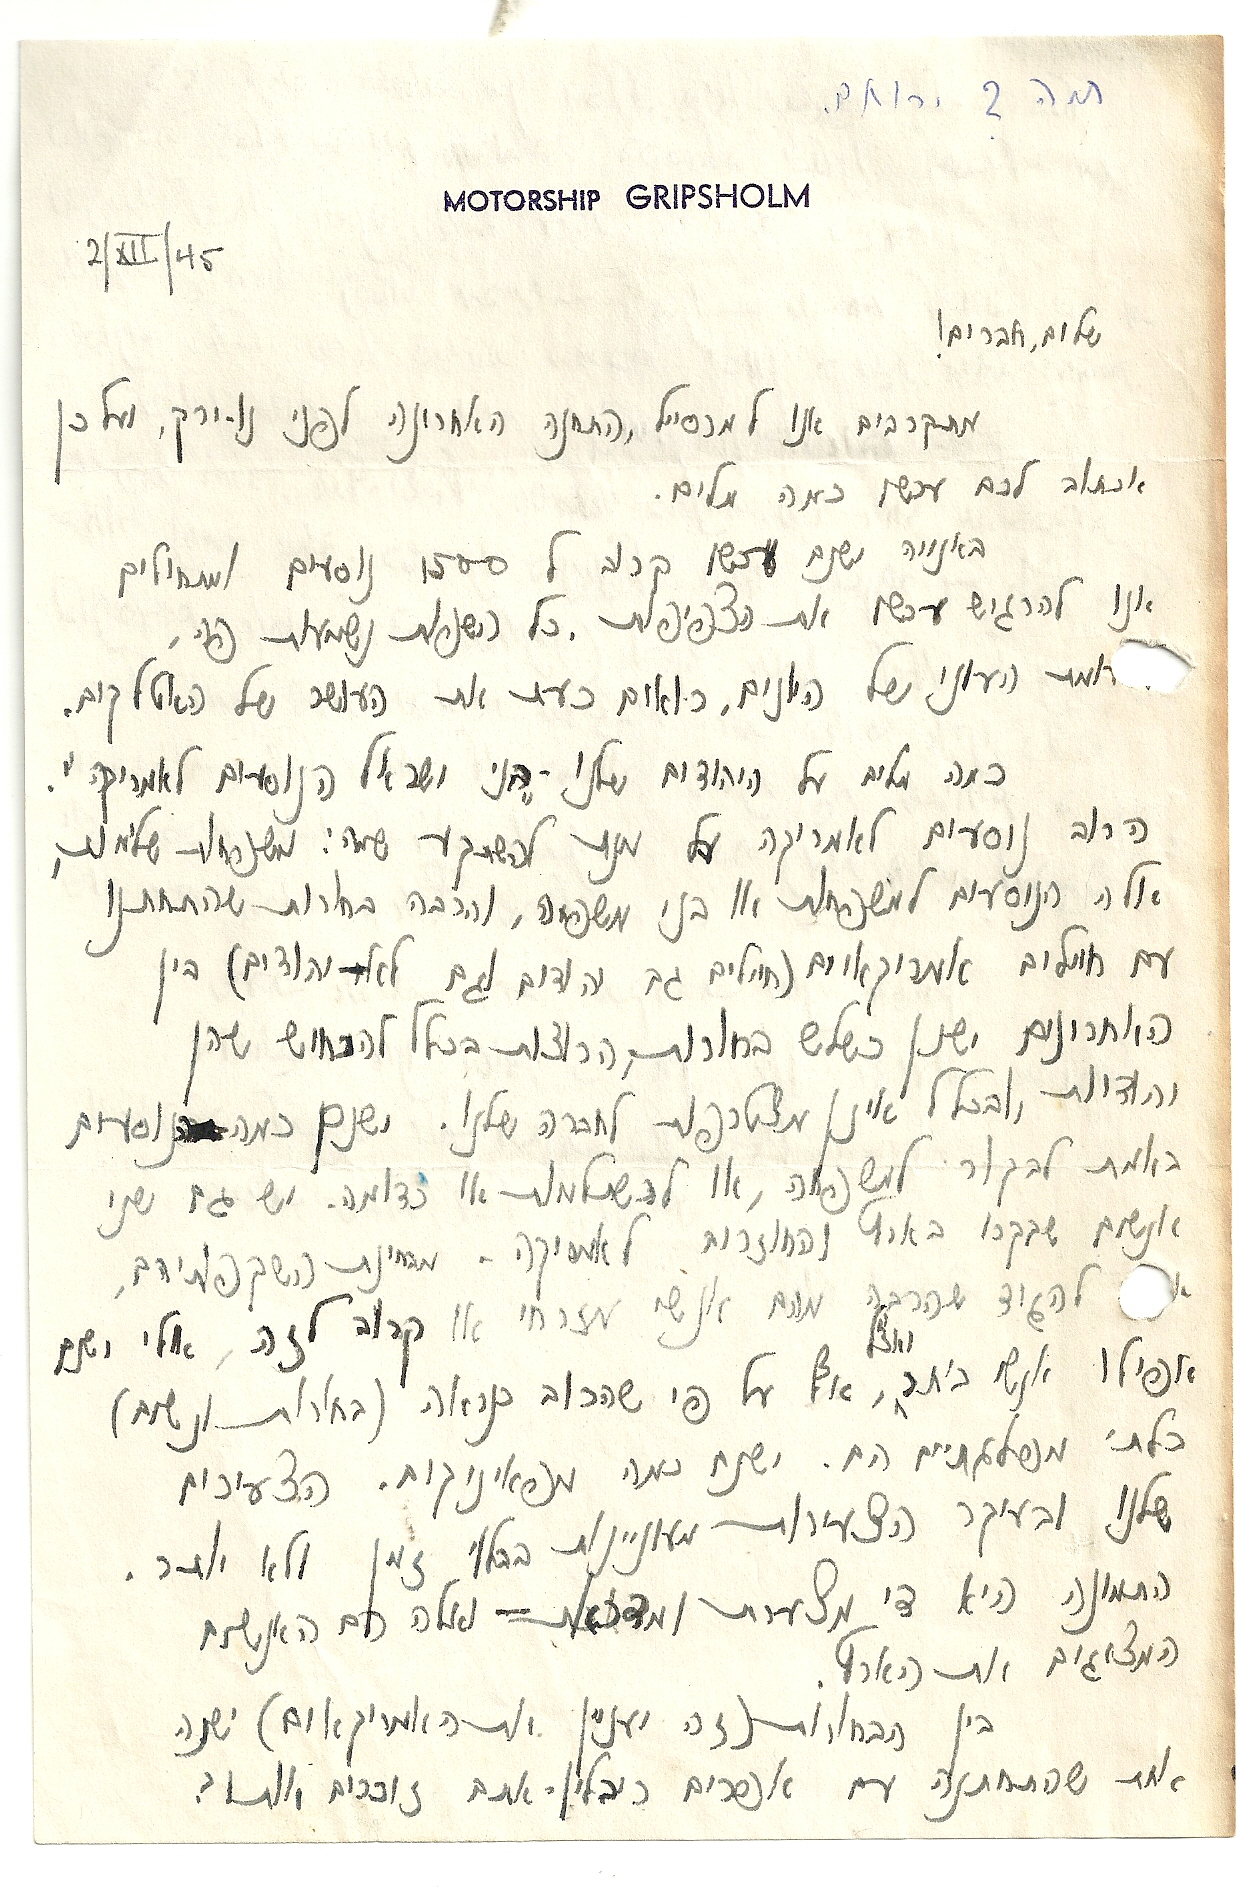 MOTORSHIP GRIPSHOLM
2/XII/45
שלום, חברים!
מתקרבים אנו למרסייל, התחנה האחרונה לפני נו-יורק, ועל כן
אכתוב לכם עכשו כמה מלים.
באנייה ישנם עכשו קרוב ל 1500 נוסעים ומתחילים
אנו להרגיש עכשו את הצפיפות. כל השפות נשמעות פה,
העוני של היונים, רואים כעת את העושר של האיטלקים.
כמה מלים על היהודים שלנו - בני ישראל הנוסעים לאמריקה".
הרוב נוסעים לאמריקה על מנת להשתקע שמה: משפחות שלמות,
אלה הנוסעים למשפחות או בני משפחה, והרבה בחורות שהתחתנו
עם חיילים אמריקאיים (חיילים גם יהודים וגם לא-יהודים) בין
האחרונים ישנן כשלש בחורות, הרוצות בכלל להכחיש שהן
יהודיות, ובכלל אינן מצטרפות לחברה שלנו. ישנם כמה נוסעים
באמת לבקור למשפחה, או להשתלמות או כדומה. יש גם שני
אנשים שבקרו בארץ וחוזרים לאמריקה - מבחינת השקפותיהם,
להגיד שהרבה מהם אנשי מזרחי או קרוב לזה, אולי ישנם
אפילו אנשי בית"ר, ואצל אף על פי שהרוב כנראה (בחורות ונשים)
בלתי מפלגתיים הם. ישנם כמה מפאיניקים. הצעירים
שלנו ובעיקר הצעירות מעוניינות בבלוי זמן ולא יותר.
התמונה היא די מצערת ומדכאת - ואלה הם האנשים
המציגים את הארץ.
בין הבחורות (זה יעניין את האמריקאים) ישנה
אחת שהתחתנה עם אפרים ריבלין - אתם זוכרים אותו?